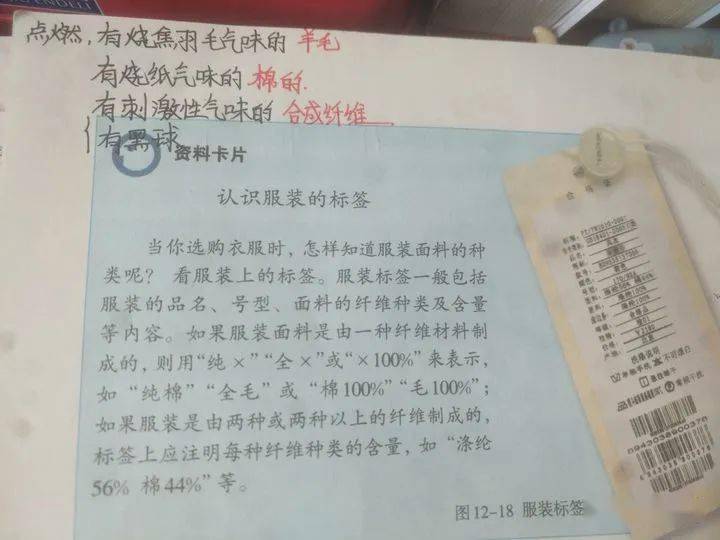 点燃,有烧焦羽毛气味的 羊毛
有烧纸气味的 棉的.
有刺激性气味的 合成纤维
有黑球
资料卡片
认识服装的标签
当你选购衣服时，怎样知道服装面料的种
类呢？ 看服装上的标签。服装标签一般包括
服装的品名、号型、面料的纤维种类及含量
等内容。如果服装面料是由一种纤维材料制
成的，则用“纯 ×”“全 ×”或“×100%”来表示，
如“纯棉”“全毛”或“棉100%”“毛100%”；
如果服装是由两种或两种以上的纤维制成的，
标签上应注明每种纤维种类的含量，如“涤纶
56% 棉44%”等。
图12-18 服装标签
合格证
洗涤说明
不可漂白